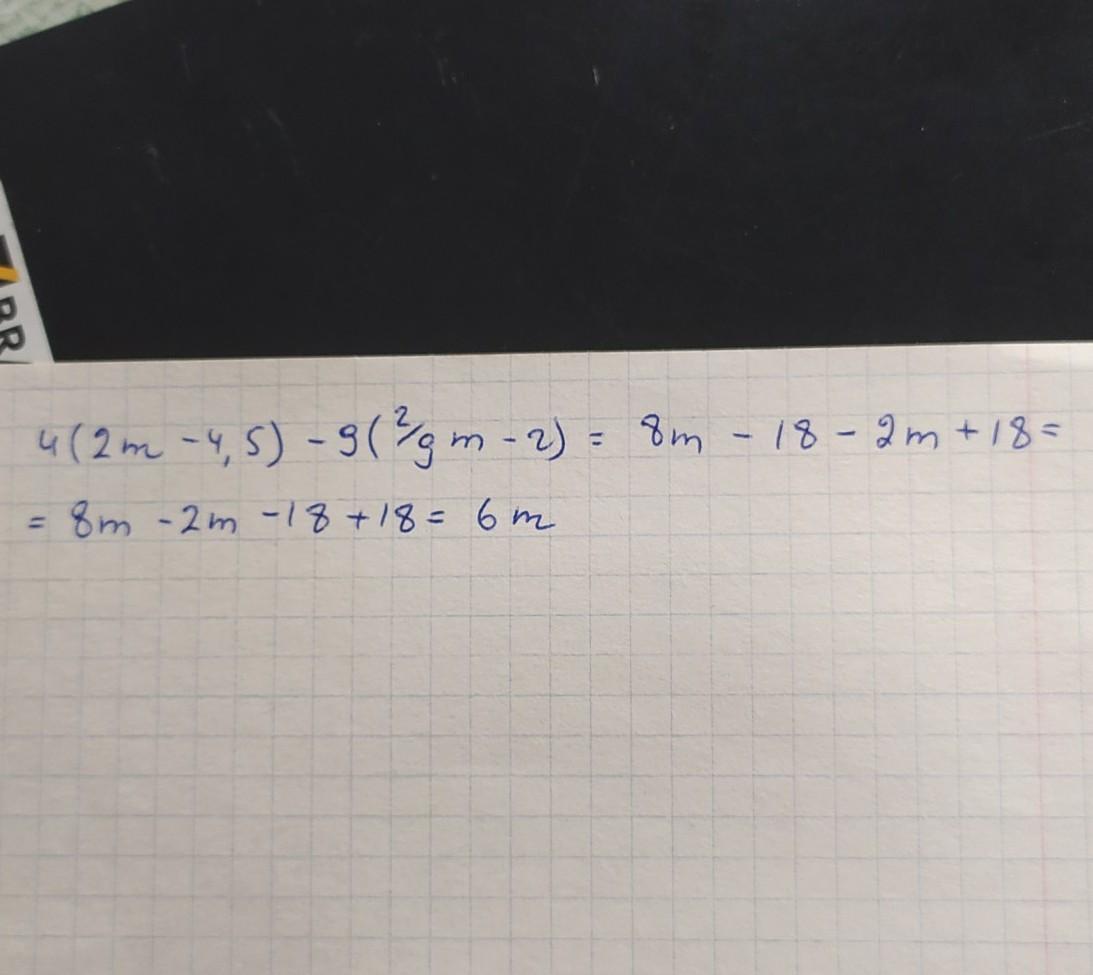 4(2m - 4,5) - 9(2/9 m - 2) = 8m - 18 - 2m + 18 =
= 8m - 2m - 18 + 18 = 6m